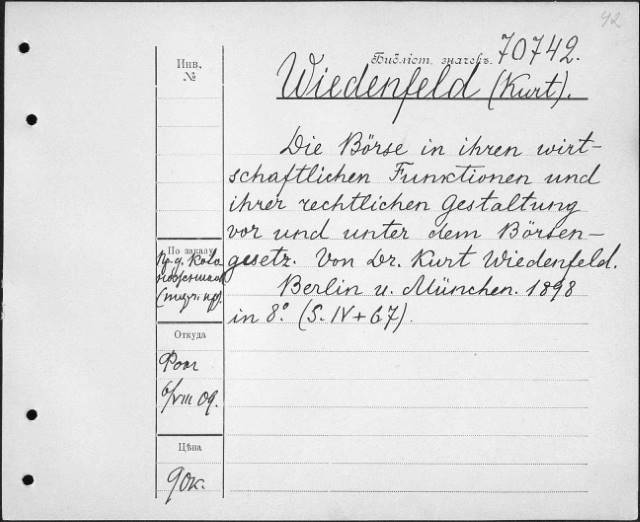 42
Инв.
№
Библіот. значекъ. 70742.
Wiedenfeld (Kurt).
Die Börse in ihren wirt-
schaftlichen Funktionen und
ihrer rechtlichen Gestaltung
vor und unter dem Börsen-
gesetz. Von Dr. Kurt Wiedenfeld.
Berlin u. München. 1898
in 8.° (S. IV + 67).
По заказу
Откуда
6/VIII 09.
Цѣна
90к.